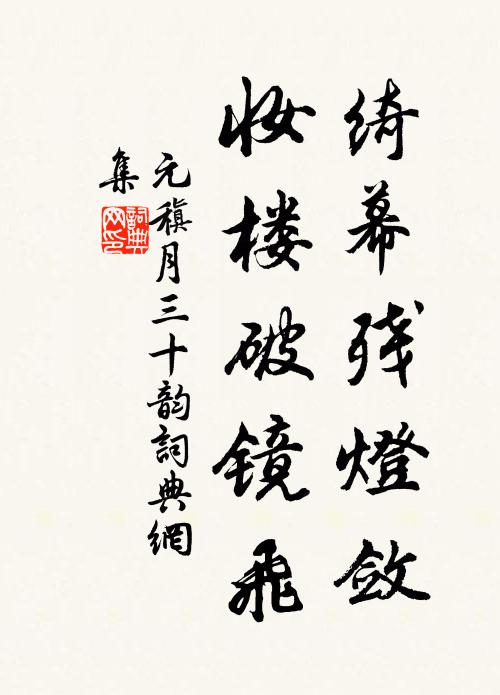 绮幕残燈敛
妆楼破镜飛
元稹月三十韵詞典網
集
詞典网印